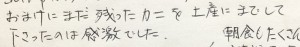 おまけにまだ残ったカニを土産にまでして
下さったのは感激でした.　朝食もたくさん